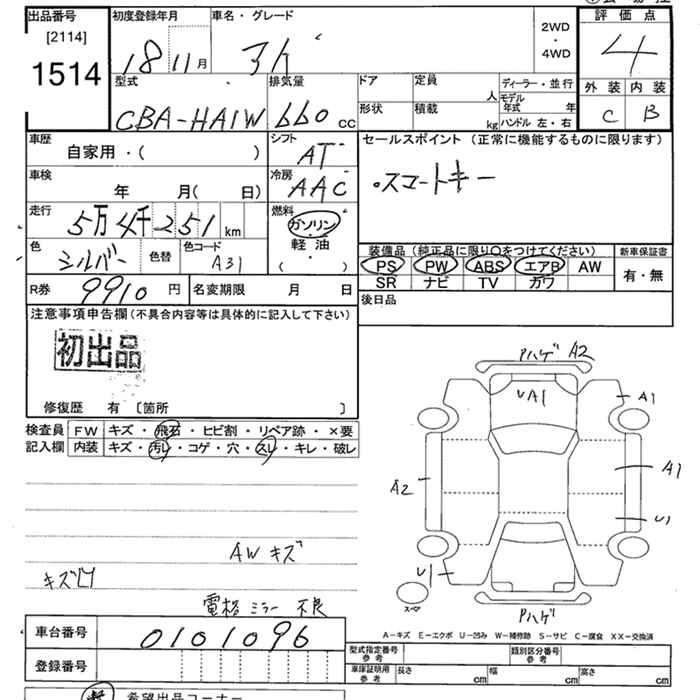 出品番号 初度登録年月 車名・グレード 2WD・4WD 評価点
[2114] 1514 18 11月 アイ 4
型式 排気量 ドア 定員 人 ディーラー・並行 外装 内装
CBA-HA1W 660 cc 形状 積載 kg モデル年式 年 ハンドル 左・右 C B
車歴 シフト セールスポイント (正常に機能するものに限ります)
自家用・( ) AT
車検 冷房 ・スマートキー
年 月( 日) AAC
走行 燃料
5万4千251km ガソリン・軽油
( ・ )
色 シルバー 色替 色コード A31 装備品 (純正品に限り○をつけてください) 新車保証書
PS PW ABS エアB AW 有・無
R券 9910円 名変期限 月 日 SR ナビ TV カワ
後日品
注意事項申告欄(不具合内容等は具体的に記入して下さい)
初出品
修復歴 有 〔箇所 〕
検査員 FW キズ・飛石・ヒビ割・リペア跡・×要
記入欄 内装 キズ・汚レ・コゲ・穴・スレ・キレ・破レ
AW キズ
キズ凹
電格 ミラー 不良
Pハゲ A2
UA1
A1
A1
A2
U1
U1
スペア
Pハゲ
A-キズ E-エクボ U-凹み W-補修跡 S-サビ C-腐食 XX-交換済
車台番号 0101096
型式指定番号 参考 類別区分番号 参考
登録番号 車庫証明用 参考 長さ cm 幅 cm 高さ cm
希望出品コーナー